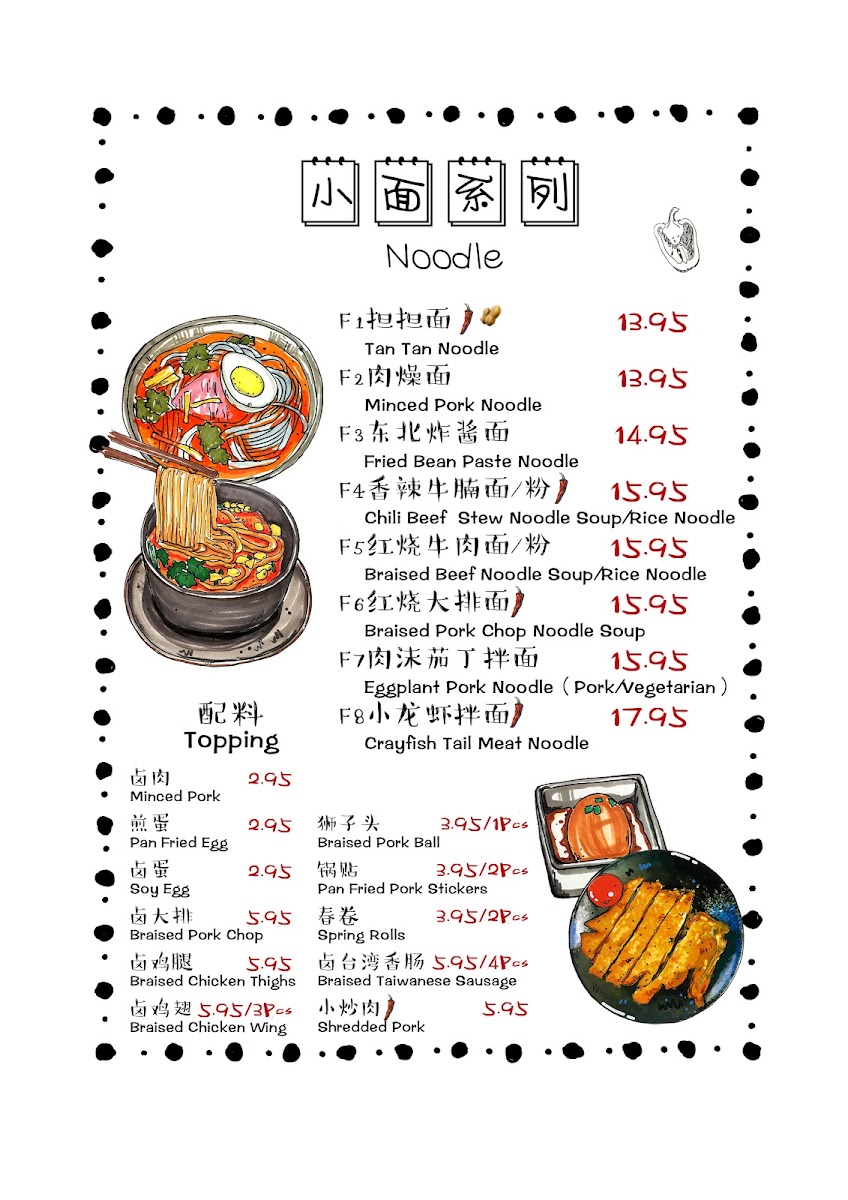 小面系列
Noodle
F1担担面 13.95
Tan Tan Noodle
F2肉燥面 13.95
Minced Pork Noodle
F3东北炸酱面 14.95
Fried Bean Paste Noodle
F4香辣牛腩面/粉 15.95
Chili Beef Stew Noodle Soup/Rice Noodle
F5红烧牛肉面/粉 15.95
Braised Beef Noodle Soup/Rice Noodle
F6红烧大排面 15.95
Braised Pork Chop Noodle Soup
F7肉沫茄丁拌面 15.95
Eggplant Pork Noodle (Pork/Vegetarian)
F8小龙虾拌面 17.95
Crayfish Tail Meat Noodle
配料
Topping
卤肉 2.95
Minced Pork
煎蛋 2.95
Pan Fried Egg
卤蛋 2.95
Soy Egg
卤大排 5.95
Braised Pork Chop
卤鸡腿 5.95
Braised Chicken Thighs
卤鸡翅 5.95/3Pcs
Braised Chicken Wing
狮子头 3.95/1Pcs
Braised Pork Ball
锅贴 3.95/2Pcs
Pan Fried Pork Stickers
春卷 3.95/2Pcs
Spring Rolls
卤台湾香肠 5.95/4Pcs
Braised Taiwanese Sausage
小炒肉 5.95
Shredded Pork